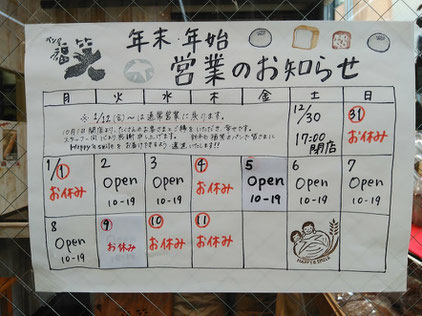 パン屋
福笑
年末・年始
営業のお知らせ
月 火 水 木 金 土 日
※ 1/12(金)〜は通常営業に戻ります。
10月1日開店より、たくさんのお客さまとご縁をいただき、幸せです。
スタッフ一同
Happy smile をお届けできるよう 邁進いたします!!
12/30
17:00
閉店
31
お休み
1/1
お休み
2
Open
10-19
3
Open
10-19
4
お休み
5
Open
10-19
6
Open
10-19
7
Open
10-19
8
Open
10-19
9
お休み
10
お休み
11
お休み
HAPPY SMILE